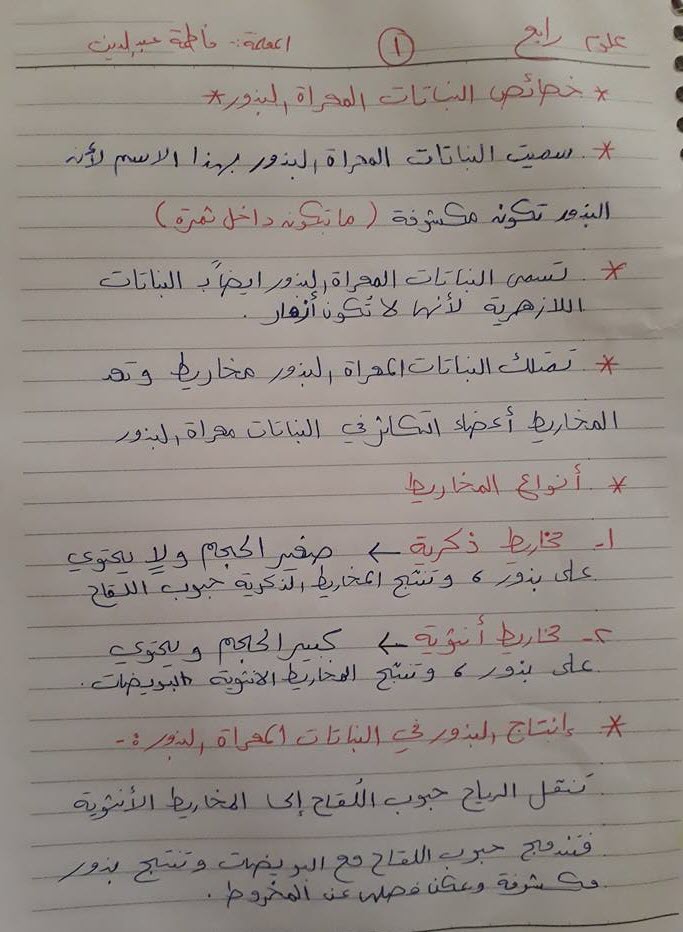 علوم رابع ١ المعلمة: فاطمة عبدالدين
* خصائص النباتات المعراة البذور *
* سميت النباتات المعراة البذور بهذا الاسم لأن
البذور تكون مكشوفة ( ما تكون داخل ثمرة )
* تسمى النباتات المعراة البذور ايضاً بـ النباتات
اللازهرية لأنها لا تُكون أزهار .
* تمتلك النباتات المعراة البذور مخاريط وتعد
المخاريط أعضاء التكاثر في النباتات معراة البذور
* أنواع المخاريط
١- مخاريط ذكرية ← صغير الحجم ولا يحتوي
على بذور ، وتنتج المخاريط الذكرية حبوب اللقاح
٢- مخاريط أنثوية ← كبير الحجم ويحتوي
على بذور ، وتنتج المخاريط الانثوية البويضات .
* إنتاج البذور في النباتات المعراة البذور :-
تنتقل الرياح حبوب اللقاح إلى المخاريط الأنثوية
فتندمج حبوب اللقاح مع البويضات وتنتج بذور
مكشوفة ويمكن فصلها عن المخروط .